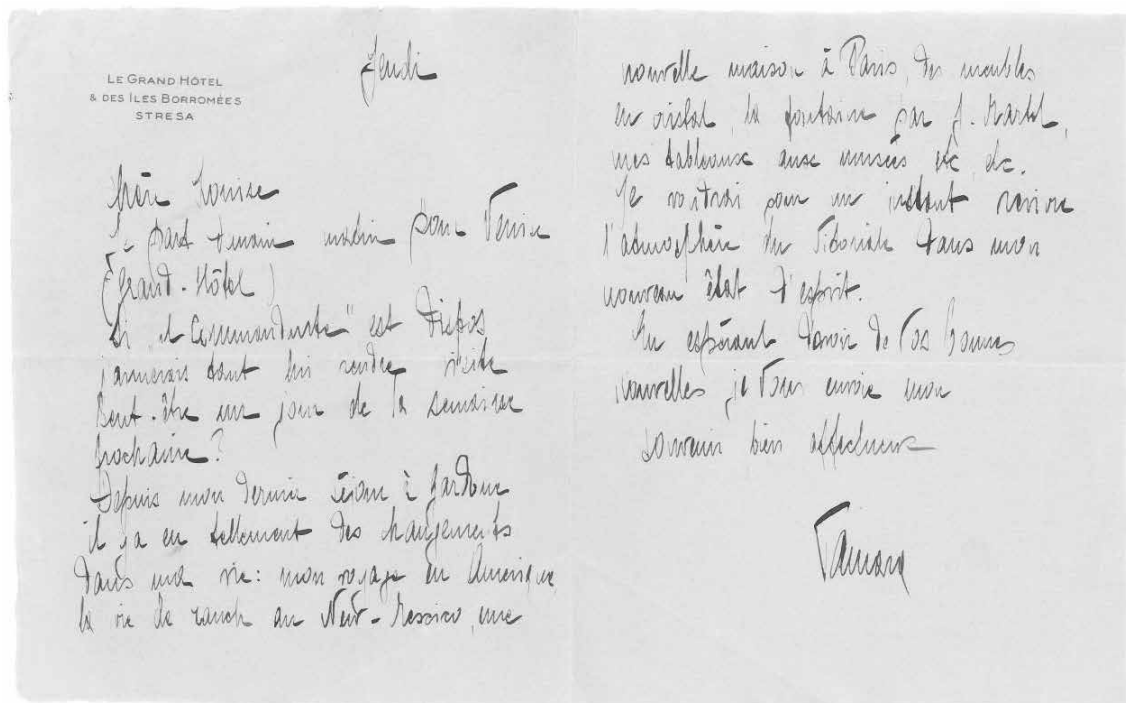 LE GRAND HÔTEL
& DES ÎLES BORROMÉES
STRESA
Jeudi
Chère Louise
Je part demain matin pour Venise
(Grand-Hôtel)
Si "il Commandante" est dispos
j'aimerais tant lui rendre visite
Peut-être un jour de la semaine
prochaine?
Depuis mon dernier séjour à Gardone
il y a eu tellement des changements
dans ma vie: mon voyage en Amerique,
la vie de ranch au New-Mexico, une
nouvelle maison à Paris, des meubles
en cristal, la fontaine par J. Martel,
mes tableaux aux musées etc, etc.
Je voudrai pour un instant revivre
l'admosphère du Vittoriale dans mon
nouveau état d'esprit.
En espérant d'avoir de Vos bonnes
nouvelles je Vous envoie mon
souvenir bien affectueux
Tamara